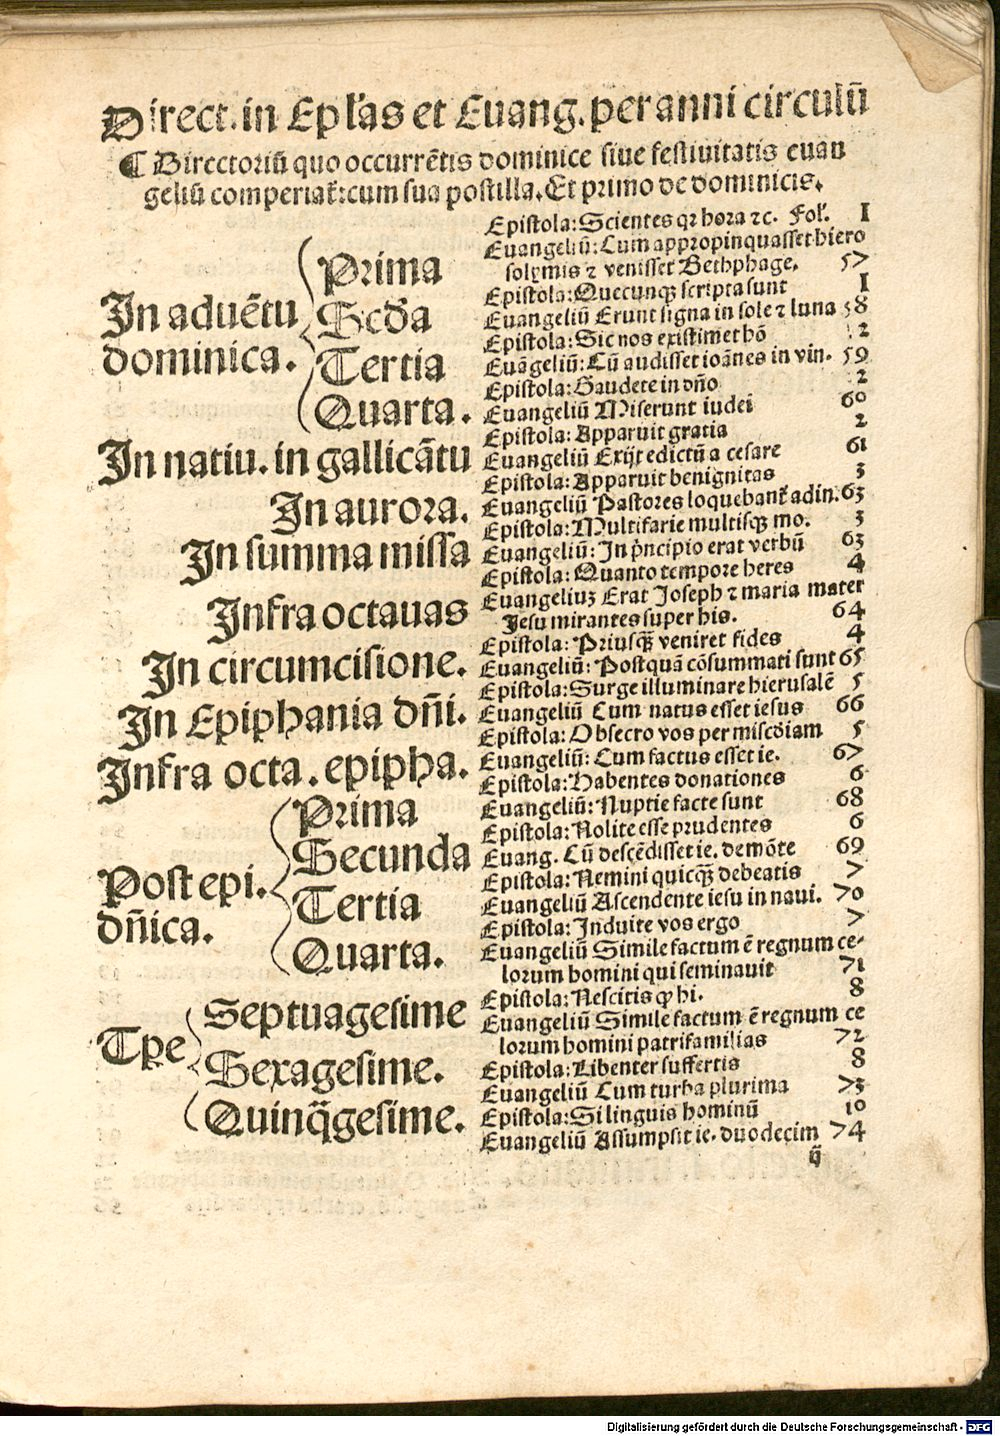 Direct. in Ep̄las et Euang. per anni circulū
¶ Directoriū quo occurrētis dominice siue festiuitatis euan
geliū comperiat̄: cum sua postilla. Et primo de dominicis.
Epistola: Scientes qꝛ hora ꝛc. Fol̄. I
Euangeliū: Cum appropinquasset hiero
solymis ⁊ venisset Bethphage. 57
In aduētu dominica.
Prima
Epistola: Quecunqꝫ scripta sunt I
Euangeliū Erunt signa in sole ⁊ luna 58
Scd̄a
Epistola: Sic nos existimet hō 2
Euāgeliū: Cū audisset ioānes in vin. 59
Tertia
Epistola: Gaudete in dn̄o 2
Euangeliū Miserunt iudei 60
Quarta.
Epistola: Apparuit gratia 2
Euangeliū Exijt edictū a cesare 61
In natiu. in gallicātu
Epistola: Apparuit benignitas 3
Euangeliū Pastores loquebant̄ adin. 63
In aurora.
Epistola: Multifarie multisqꝫ mo. 3
Euangeliū: In pͥncipio erat verbū 63
In summa missa
Epistola: Quanto tempore heres 4
Euangeliuꝫ Erat Joseph ⁊ maria mater
Jesu mirantes super his. 64
Infra octauas
Epistola: Priusqꝫ̄ veniret fides 4
Euangeliū: Postquā cōsummati sunt 65
In circumcisione.
Epistola: Surge illuminare hierusalē 5
Euangeliū Cum natus esset iesus 66
In Epiphania dn̄i.
Epistola: Obsecro vos per miscd̄iam 5
Euangeliū: Cum factus esset ie. 67
Infra octa. epipha.
Epistola: Habentes donationes 6
Euangeliū: Nuptie facte sunt 68
Post epi. dn̄ica.
Prima
Epistola: Nolite esse prudentes 6
Euang. Cū descēdisset ie. de mōte 69
Secunda
Epistola: Nemini quicqꝫ̄ debeatis 7
Euangeliū Ascendente iesu in naui. 70
Tertia
Epistola: Induite vos ergo 7
Euangeliū Simile factum ē regnum ce-
lorum homini qui seminauit 71
Quarta.
Epistola: Nescitis ꝙ hi. 8
Euangeliū Simile factum ē regnum ce
lorum homini patrifamilias 72
Tp̄e
Septuagesime
Epistola: Libenter suffertis 8
Euangeliū Cum turba plurima 73
Sexagesime.
Epistola: Si linguis hominū 10
Euangeliū Assumpsit ie. duodecim 74
Quinq̄gesime.
ij
Digitalisierung gefördert durch die Deutsche Forschungsgemeinschaft - DFG